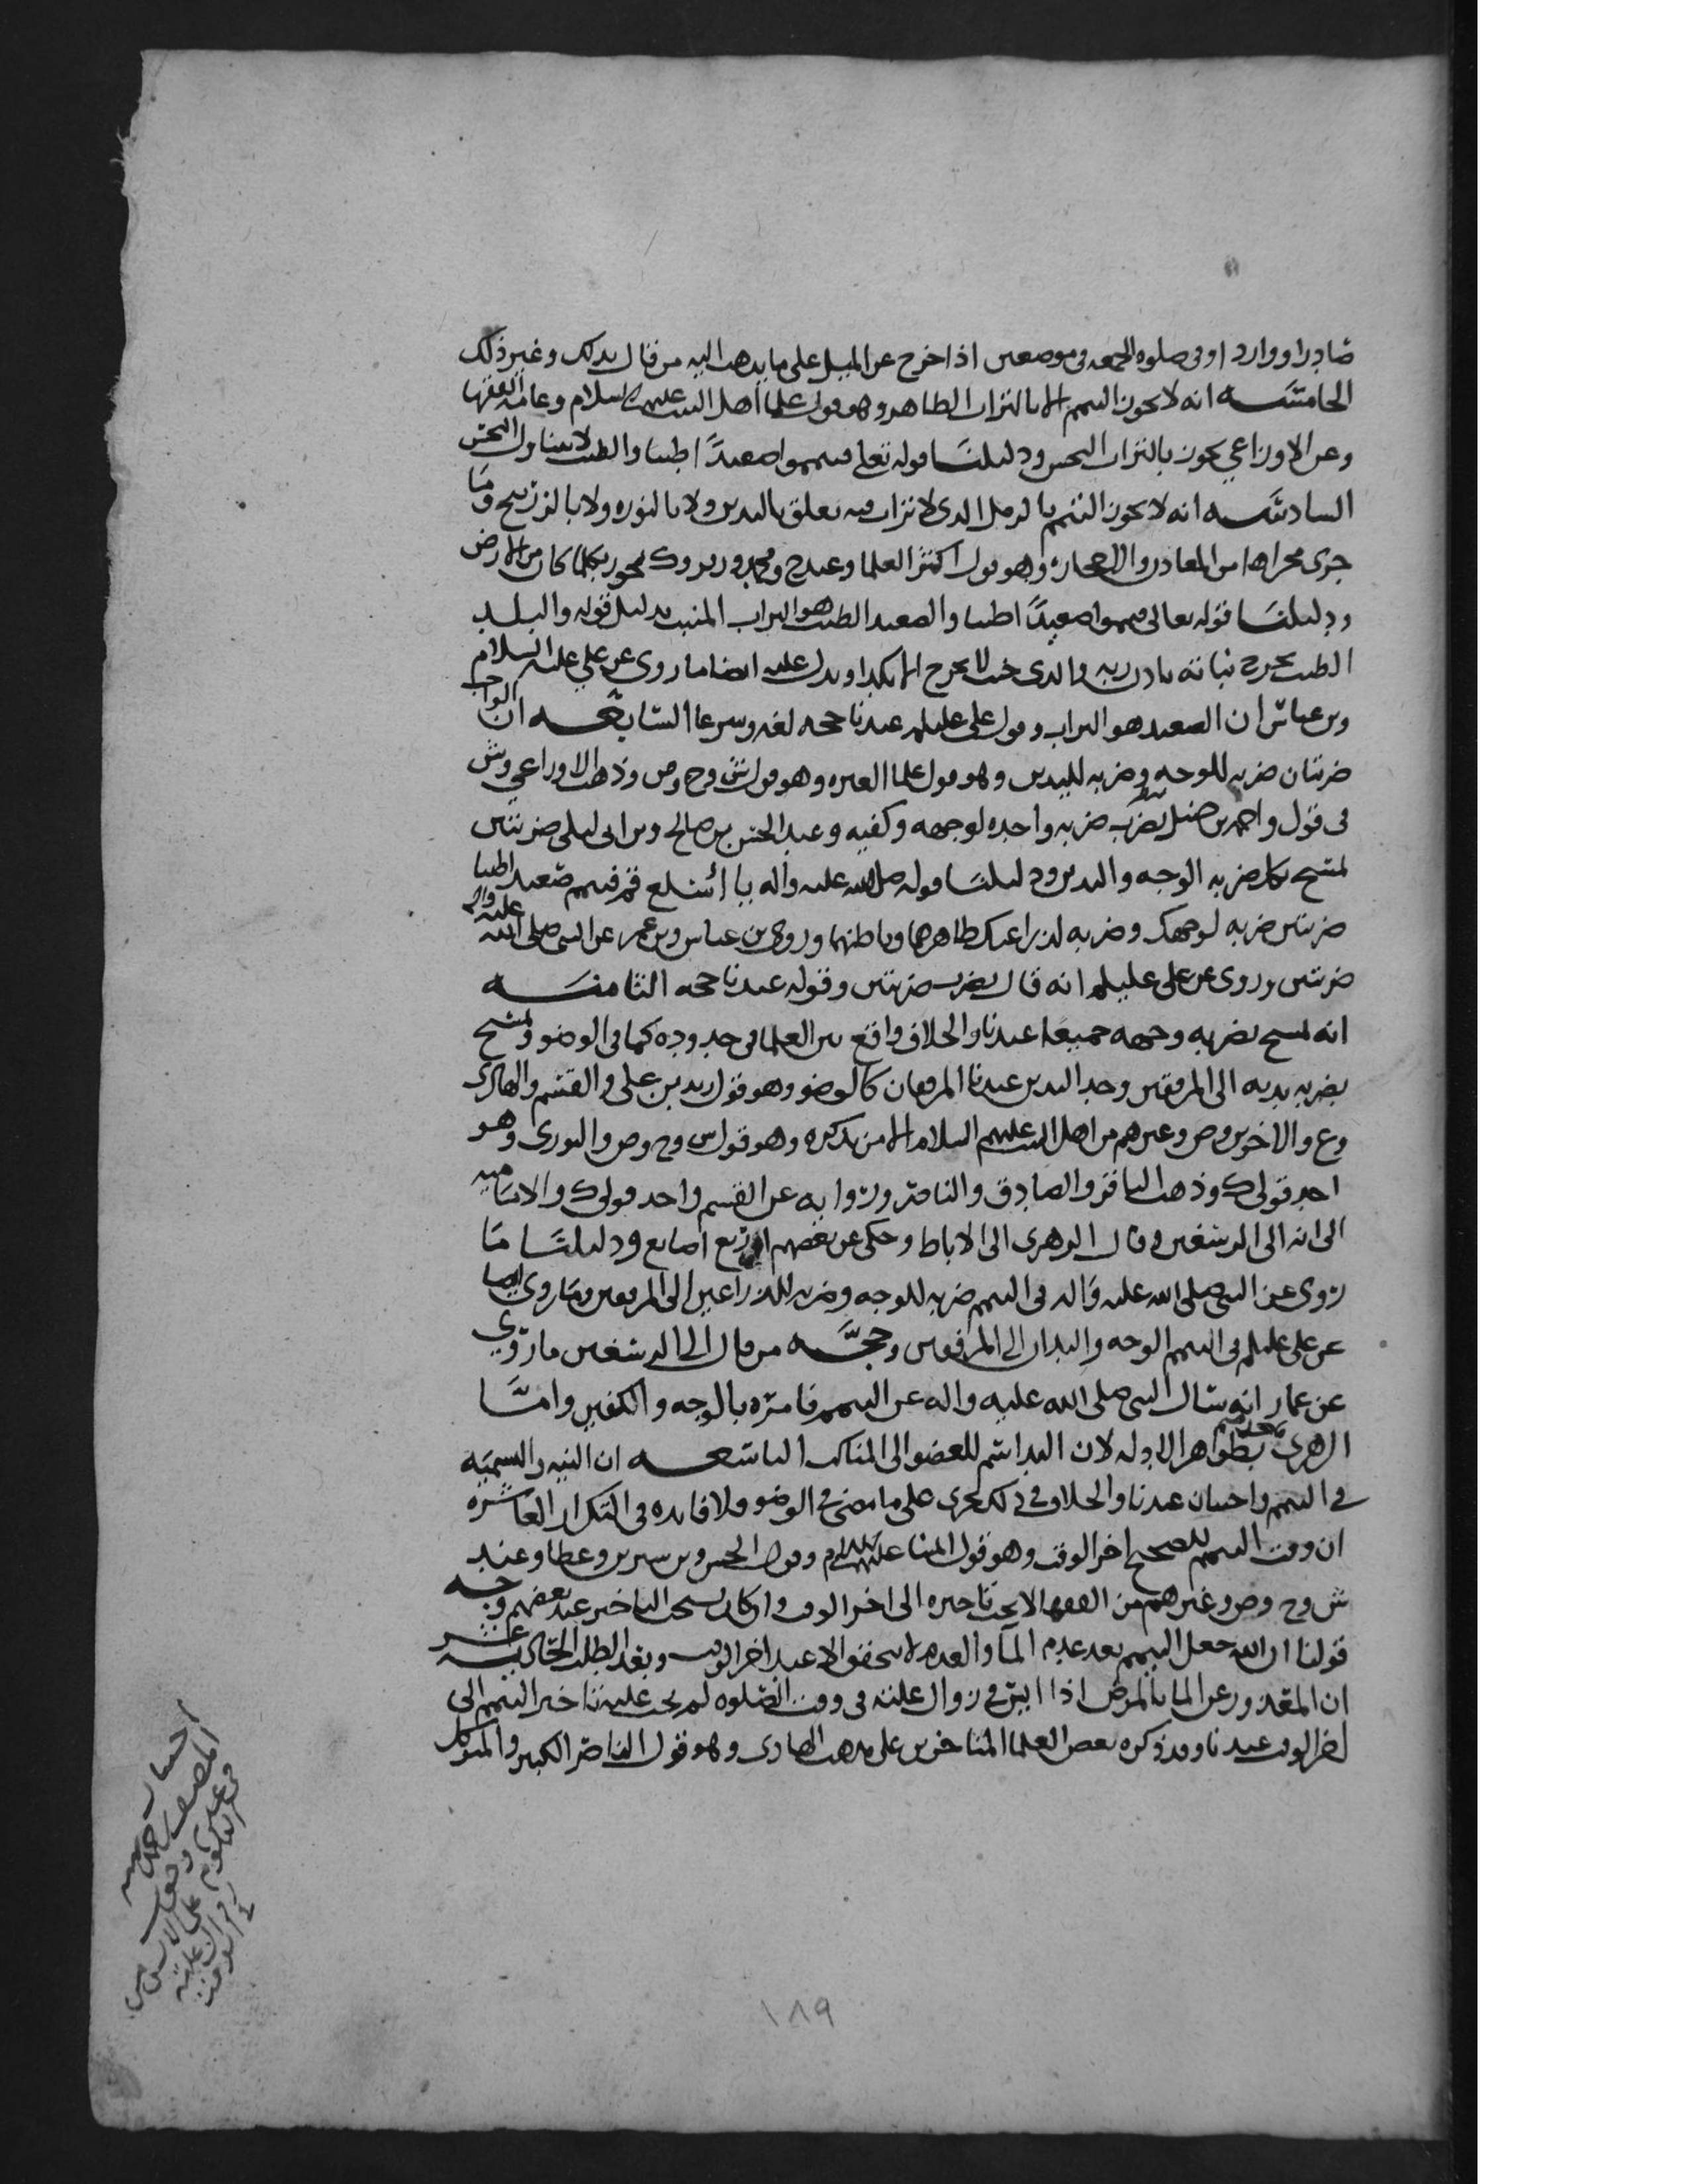 صادرا ووارد او في صلوه الجمعه في موضعين اذا خرج عن الميل على ما يذهب اليه من قال بذلك وغير ذلك
الخامسه انه لا يجوز التيمم الا بالتراب الطاهر وهو قول علما اهل البيت عليهم السلام وعامه الفقها
وعن الاوزاعي يجوز بالتراب النجس ودليلنا قوله تعلى فتيمموا صعيدًا طيبا والطيب لا يتناول النجس
السادسه انه لا يجوز التيمم بالرمل الذي لا تراب فيه يعلق باليدين ولا بالنوره ولا بالزرنيخ وما
جرى مجراها من المعادن والاحجاره وهو قول اكثر العلما وعند ح ومحمد وزفر وك يجوز بكلما كان من الارض
ودليلنا قوله تعالى فتيمموا صعيدًا طيبا والصعيد الطيب هو التراب المنبت بدليل قوله والبلد
الطيب يخرج نباته باذن ربه والذي خبث لا يخرج الا نكدا ويدل عليه ايضا ما روى عن علي عليه السلام
وبن عباس ان الصعيد هو التراب وقول علي عليلم عندنا حجه لغه وشرعا السابعه ان الواجب
ضربتان ضربه للوجه وضربه لليدين وهو قول علما العتره وهو قول ش وح وص وذهب الاوزاعي وش
في قول واحمد بن حنبل يضرب ضربه واحده لوجهه وكفيه وعند الحسن بن صالح وبن ابي ليلى ضربتين
لمسح بكل ضربه الوجه واليدين ودليلنا قوله صلى الله عليه واله يا اسلع قم فتيمم صعيدا طيبا
ضربتين ضربه لوجهك وضربه لذراعيك ظاهرهما وباطنهما وروى بن عباس وبن عمر عن النبي صلى الله عليه واله
ضربتين وروى عن علي عليلم انه قال يضرب ضربتين وقوله عندنا حجه الثامنه
انه يمسح بضربه وجهه جميعا عندنا والخلاف واقع بين العلما في حدوده كما في الوضو ويمسح
بضربه يديه الى المرفقين وحد اليدين عندنا المرفقان كالوضو وهو قول زيد بن علي والقسم والهادي
وع والاخوين وص وغيرهم من اهل البيت عليهم السلام الا من نذكره وهو قول ش وح وص والثوري وهو
احد قولي ك وذهب الباقر والصادق والناصر ورواية عن القسم واحد قولي ك والاماميه
الى انه الى الرسغين وقال الزهري الى الاباط وحكي عن بعضهم اربع اصابع ودليلنا ما
روى عن النبي صلى الله عليه واله في التيمم ضربه للوجه وضربه للذراعين الى المرفقين وما روي ايضا
عن علي عليلم في التيمم الوجه واليدان الى المرفقين وحجَّه من قال الى الرسغين ما روي
عن عمار انه سال النبي صلى الله عليه واله عن التيمم فامره بالوجه والكفين وامَّا
الزهري بظواهر الادله لان اليد اسم للعضو الى المناكب التاسعه ان النيه والتسميه
في التيمم واجبتان عندنا والخلاف في ذلك يجري على ما مضى في الوضو ولا فايده في التكرار العاشره
ان وقت التيمم للصحيح اخر الوقت وهو قول ايمتنا عليهم السلام وقول الحسن وبن سيرين وعطا وعند
ش وح وص وغيرهم من الفقها لا يجب تاخيره الى اخر الوقت وان كان يستحب التاخير عند بعضهم وجه
قولنا ان الله جعل التيمم بعد عدم المآ والعدم لا يتحقق الا عند اخر الوقت وبعد الطلب الحاديه عشر
ان المعذور عن الما بالمرض اذا ايس في زوال علته في وقت الصلوه لم يجب عليه تاخير التيمم الى
اخر الوقت عندنا وقد ذكره بعض العلما المتاخرين على مذهب الهادي وهو قول الناصر الكبير والمتوكل
١٨٩